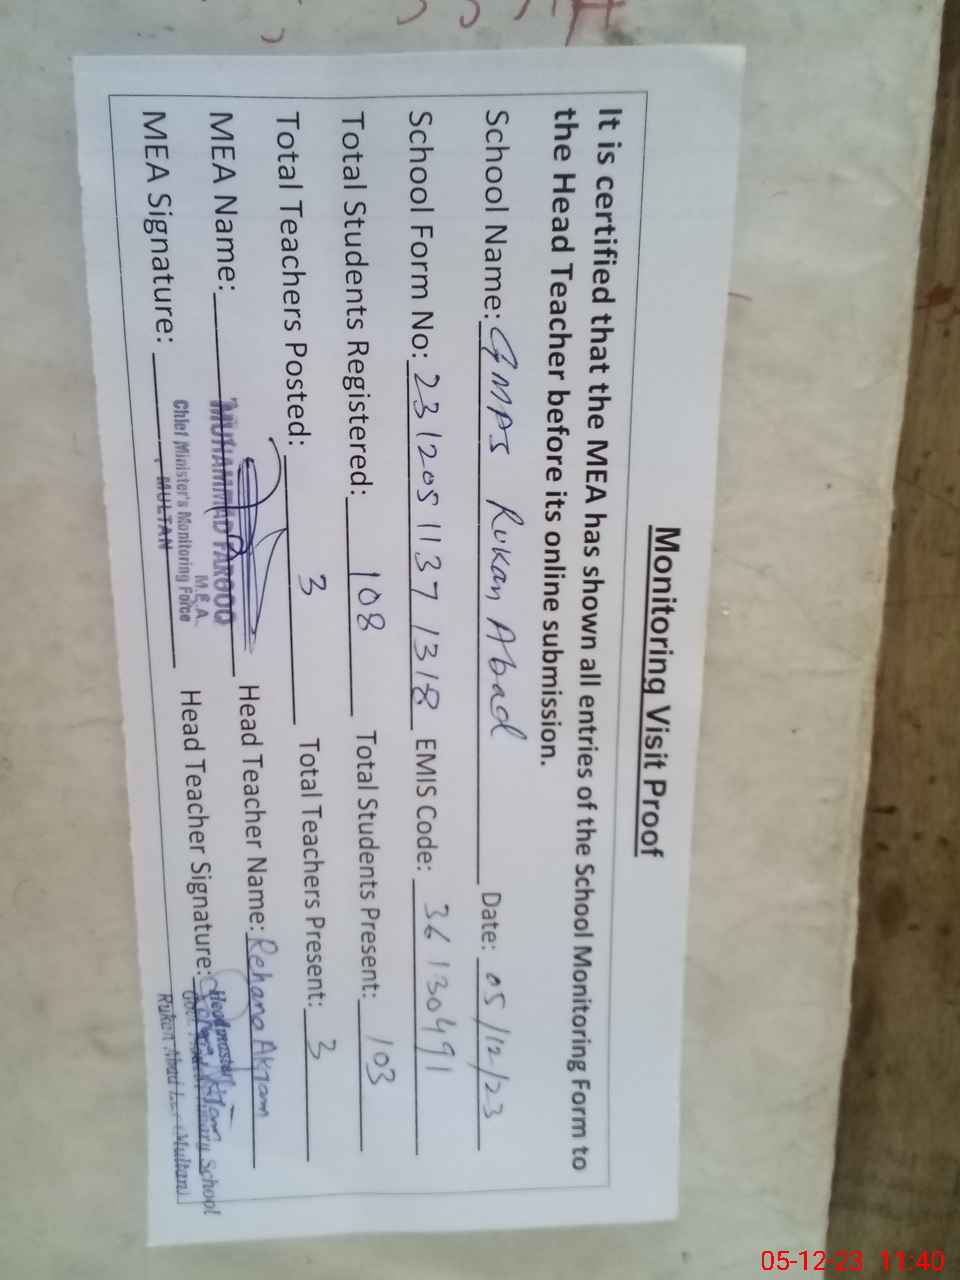 Monitoring Visit Proof
It is certified that the MEA has shown all entries of the School Monitoring Form to
the Head Teacher before its online submission.
School Name: GMPS Rukan Abad Date: 05/12/23
School Form No: 23120511371318 EMIS Code: 36130491
Total Students Registered: 108 Total Students Present: 103
Total Teachers Posted: 3 Total Teachers Present: 3
MEA Name: MUHAMMAD FAROOQ Head Teacher Name: Rehana Akram
M.E.A.
Chief Minister's Monitoring Force
MULTAN
MEA Signature: Head Teacher Signature:
Headmaster
Govt. School
Rukan Abad (Multan)
05-12-23 11:40